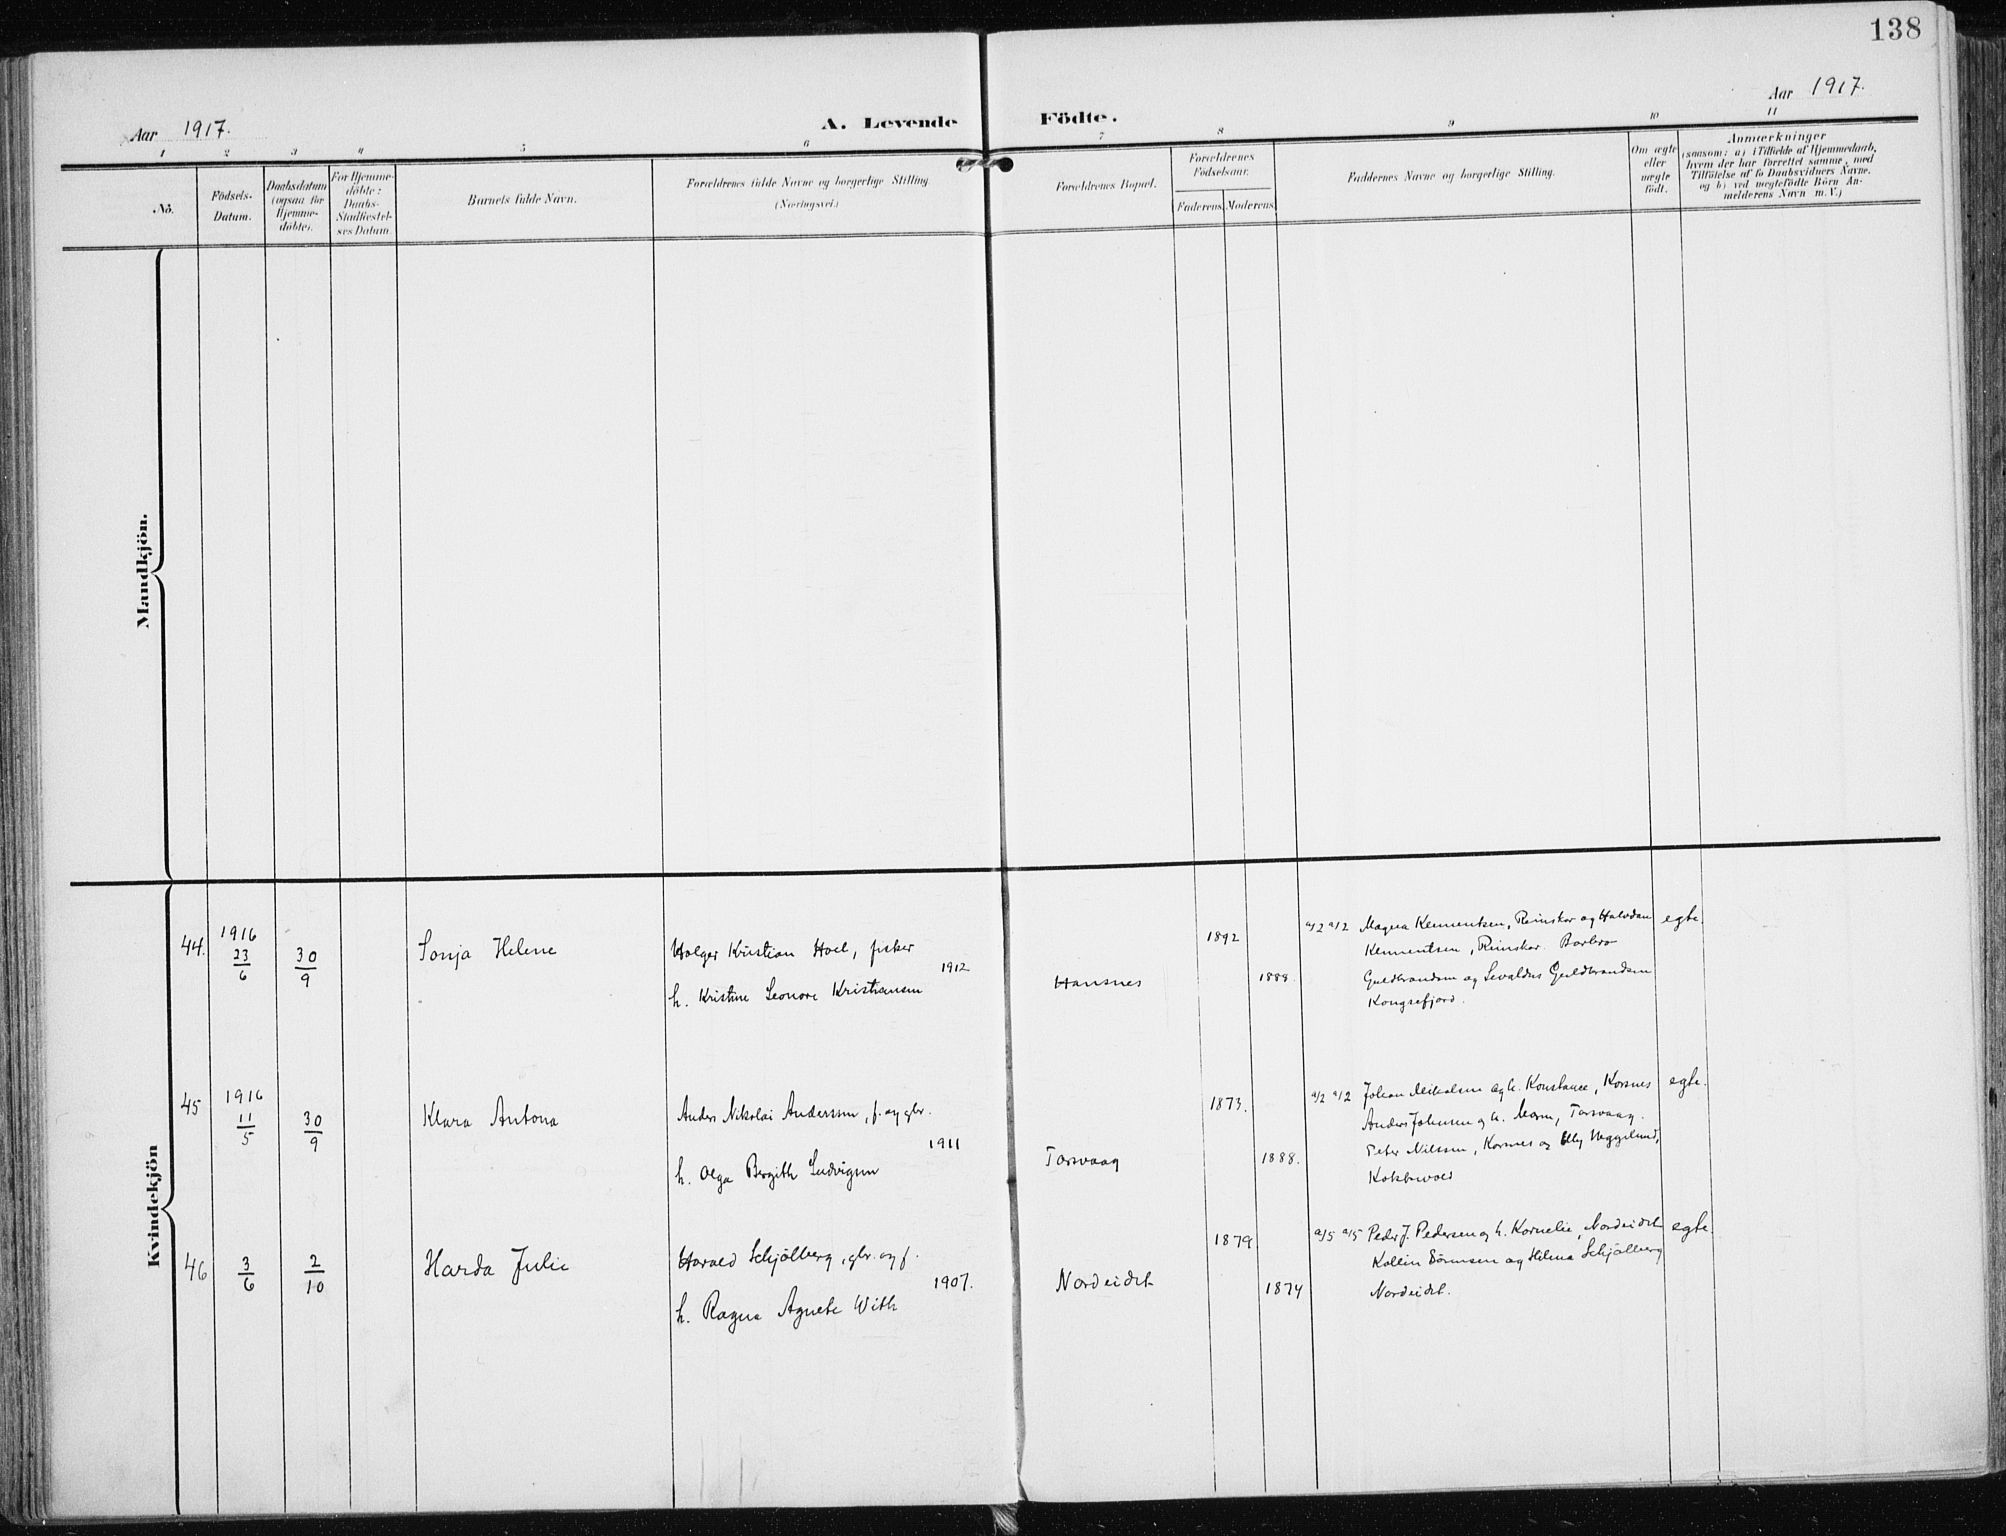 138
Aar 1917.
A. Levende Födte.
Aar 1917.
1 2 3 4 5 6 7 8 9 10 11
No.
Födsels-
Datum.
Daabsdatum
(ogsaa for
Hjemme-
döbte).
For Hjemme-
döbte:
Daabs-
Stadfæstel-
ses Datum.
Barnets fulde Navn.
Forældrenes fulde Navne og borgerlige Stilling
(Næringsvei.)
Forældrenes Bopæl.
Forældrenes
Födselsaar.
Faderens. Moderens.
Faddernes Navne og borgerlige Stilling.
Om ægte
eller
uægte
födt.
Anmærkninger
(saasom: a) i Tilfælde af Hjemmedaab,
hvem der har forrettet samme, med
Tilföielse af to Daabsvidners Navne.
og b) ved uægtefödte Börn An-
melderens Navn m. V.)
Mandkjön.
Kvindekjön
44.
1916
23
6
30
9
Sonja Helene
Holger Kristian Hoel, fisker
1912
h. Kristine Leonore Kristiansen
Hansnes
1892
1888.
a/2 a/2 Magna Klementsen, Reinskar og Halvdan
Klementsen, Reinskar. Barbro
Guldbrandsen og Sevaldus Guldbrandsen
Kongsfjord.
egte.
45
1916
11
5
30
9
Klara Antona
Anders Nikolai Anderssen, f. og gbr.
1911
h. Olga Bergith Ludvigsen
Torsvaag
1873.
1888.
a/2 a/2 Johan Mikalsen og h. Konstance, Korsnes
Anders Johnsen og h. Maren, Torsvaag.
Peter Nilssen, Korsnes og Elly Heggelund,
egte.
46
3
6
2
10
Harda Julie
Harald Schjölberg, gbr. og f.
1907.
h. Ragna Agnete With
Nordeidet
1879
1874
a/5 a/5 Peder J. Pedersen og h. Kornelie, Nordeidet
Kollin Sörensen og Helena Schjölberg
Nordeidet.
egte.